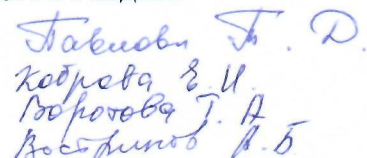 Павлова Т. Д.
Коврова Е. И.
Воротова Т. А
Востриков А. Б